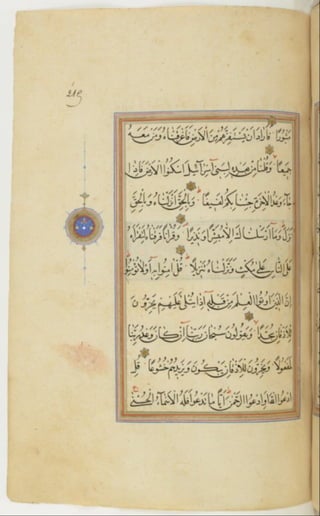 مَثْبُورًا فَأَرَادَ أَنْ يَسْتَفِزَّهُمْ مِنَ الْأَرْضِ فَأَغْرَقْنَاهُ وَمَنْ مَعَهُ
جَمِيعًا وَقُلْنَا مِنْ بَعْدِهِ لِبَنِي إِسْرَائِيلَ اسْكُنُوا الْأَرْضَ فَإِذَا
جَاءَ وَعْدُ الْآخِرَةِ جِئْنَا بِكُمْ لَفِيفًا وَبِالْحَقِّ أَنْزَلْنَاهُ وَبِالْحَقِّ
نَزَلَ وَمَا أَرْسَلْنَاكَ إِلَّا مُبَشِّرًا وَنَذِيرًا وَقُرْآنًا فَرَقْنَاهُ لِتَقْرَأَهُ
عَلَى النَّاسِ عَلَى مُكْثٍ وَنَزَّلْنَاهُ تَنْزِيلًا قُلْ آمِنُوا بِهِ أَوْ لَا تُؤْمِنُوا
إِنَّ الَّذِينَ أُوتُوا الْعِلْمَ مِنْ قَبْلِهِ إِذَا يُتْلَى عَلَيْهِمْ يَخِرُّونَ
لِلْأَذْقَانِ سُجَّدًا وَيَقُولُونَ سُبْحَانَ رَبِّنَا إِنْ كَانَ وَعْدُ رَبِّنَا
لَمَفْعُولًا وَيَخِرُّونَ لِلْأَذْقَانِ يَبْكُونَ وَيَزِيدُهُمْ خُشُوعًا قُلِ
ادْعُوا اللَّهَ أَوِ ادْعُوا الرَّحْمَنَ أَيًّا مَا تَدْعُوا فَلَهُ الْأَسْمَاءُ الْحُسْنَى